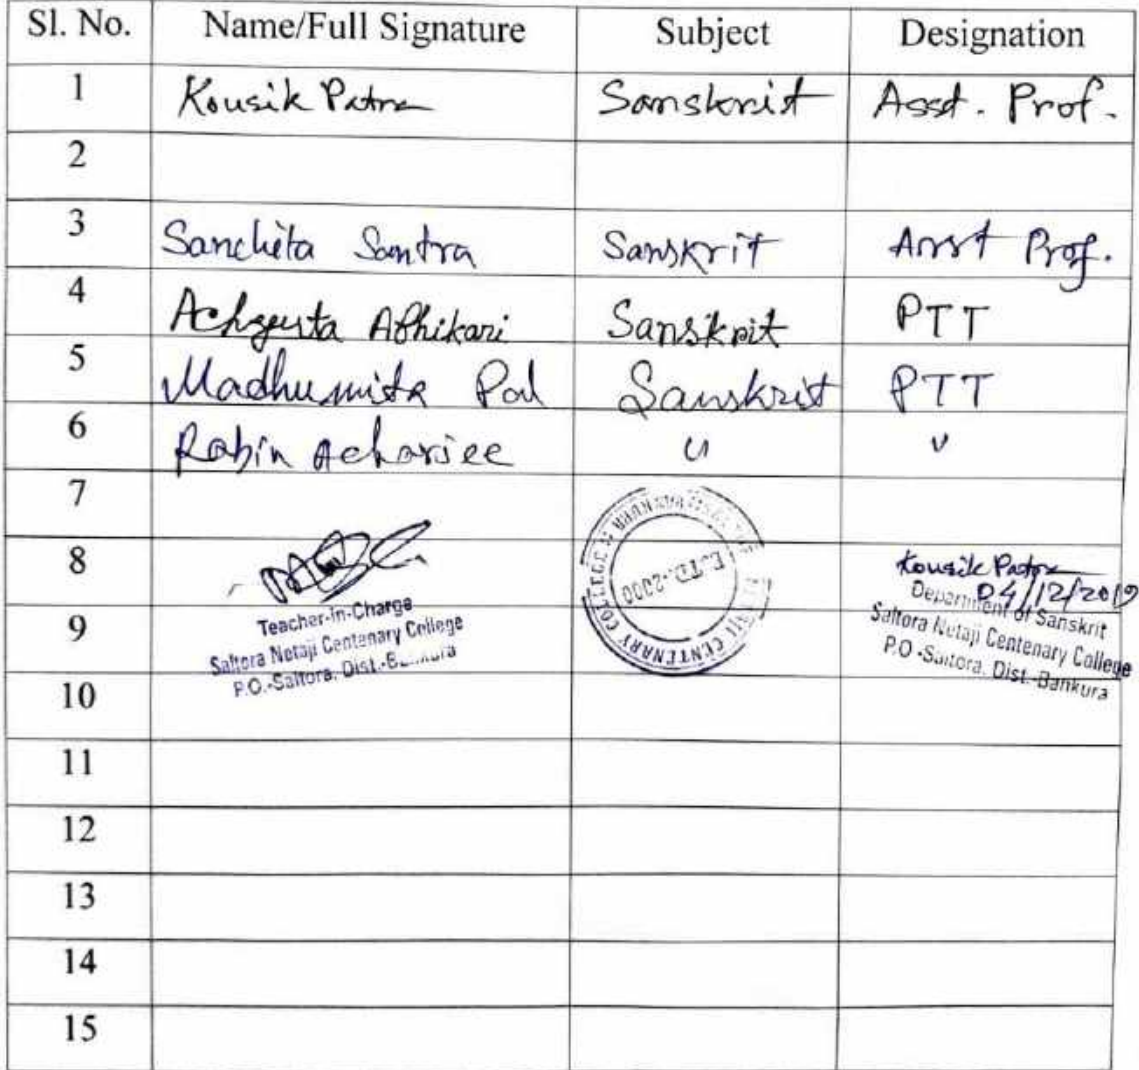 Sl. No. Name/Full Signature Subject Designation
1 Kousik Patra Sanskrit Asst. Prof.
2
3 Sancheta Santra Sanskrit Asst Prof.
4 Achyuta Adhikari Sanskrit PTT
5 Madhumita Pal Sanskrit PTT
6 Robin Acharjee u v
7
8
Teacher-in-Charge
Saltora Netaji Centenary College
P.O.-Saltora, Dist.-Bankura
ESTD.-2000
CENTENARY COLLEGE
Kousik Patra
04/12/2019
Department of Sanskrit
Saltora Netaji Centenary College
P.O.-Saltora, Dist.-Bankura
9
10
11
12
13
14
15